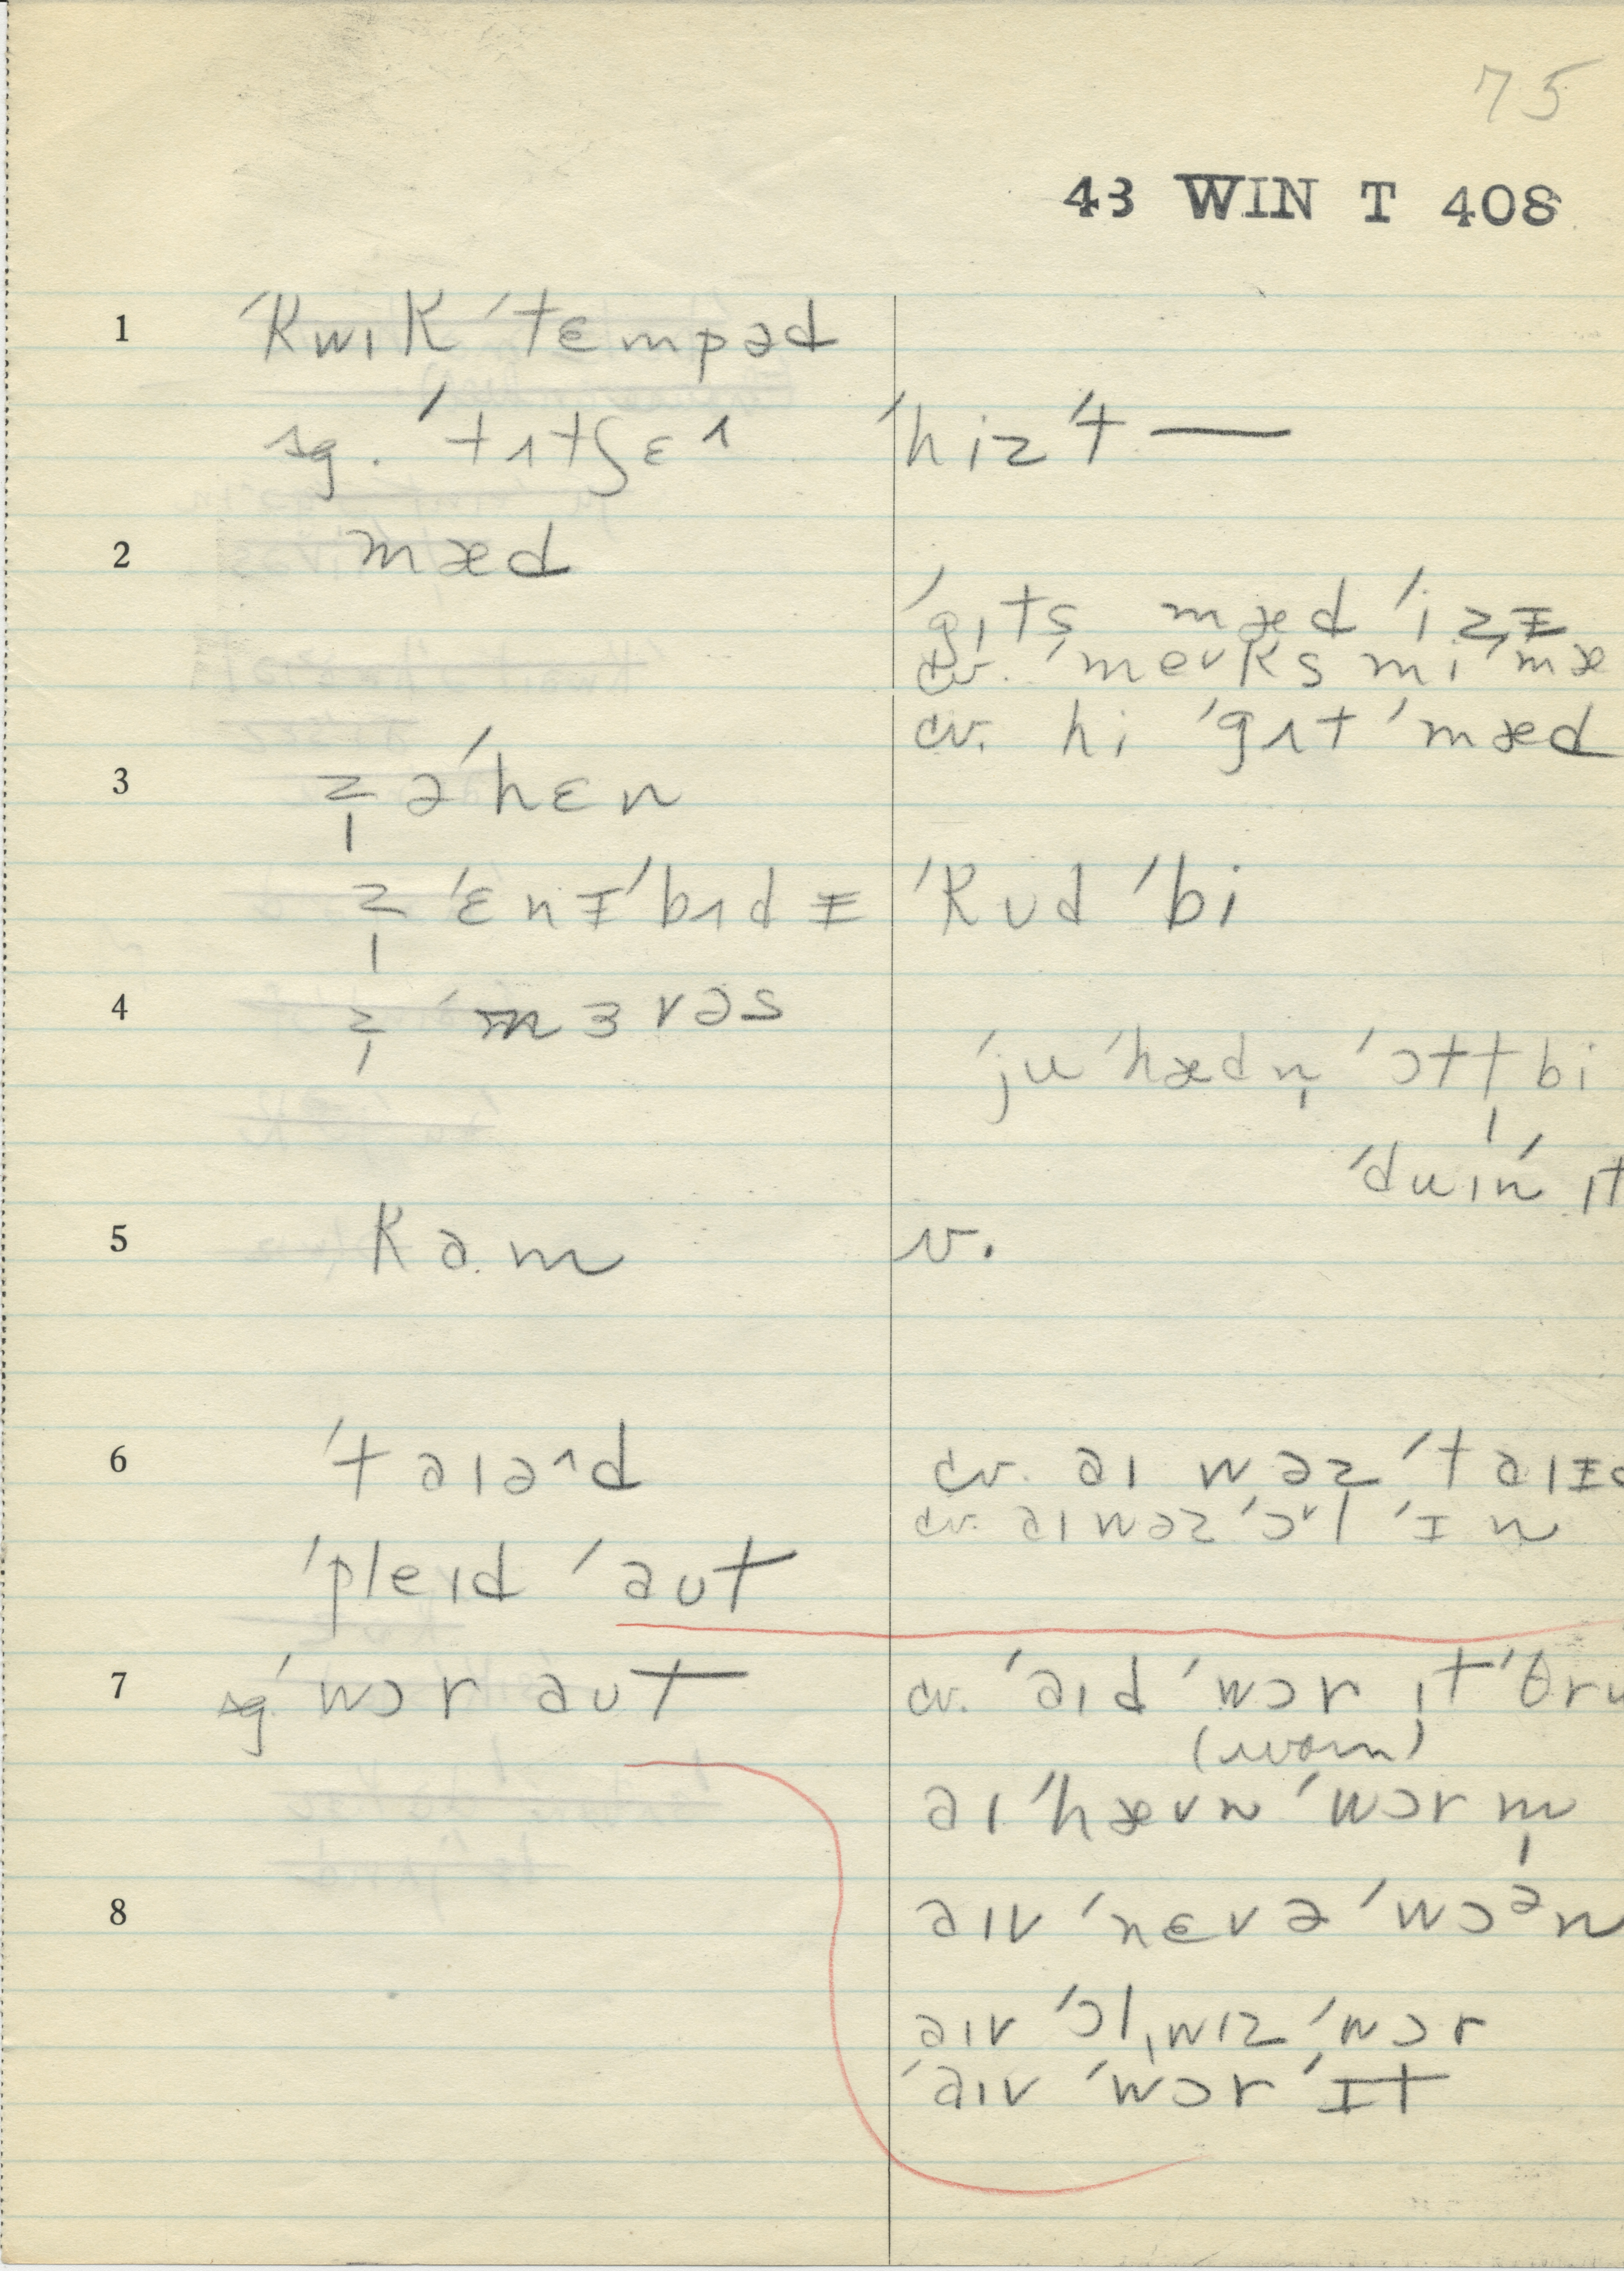 75
43 WIN T 408
1 ˈkwɪk ˈtɛmpəd
sg. ˈtɪtʃɛɪ ˈhiz ˈt —
2 mæd
ˈgɪts mæd ˈizɪ
cv. ˈmeɪks mi ˈmæ
cv. hi ˈgɪt ˈmæd
3 z̩ əˈhɛn
z̩ ˈɛnɪˈbɪdɪ ˈkʊd ˈbi
4 z̩ ˈmɜvəs
ˈju ˈhædn̩ ˈɔtt̩ bi
ˈduɪn ɪt
5 kam v.
6 ˈtaɪəd cv. aɪ wəz ˈtaɪɪd
cv. aɪ wəz ˈɔl ˈɪn
ˈpleɪd ˈaʊt
7 sg ˈwɔr aʊt cv. ˈaɪd ˈwɔr ɪt ˈθru
(worn)
aɪ ˈhævn ˈwɔr m̩
8 aɪv ˈnɛvə ˈwɔᵊn
aɪv ˈɔlˌwɪz ˈwɔr
ˈaɪv ˈwɔr ˈɪt